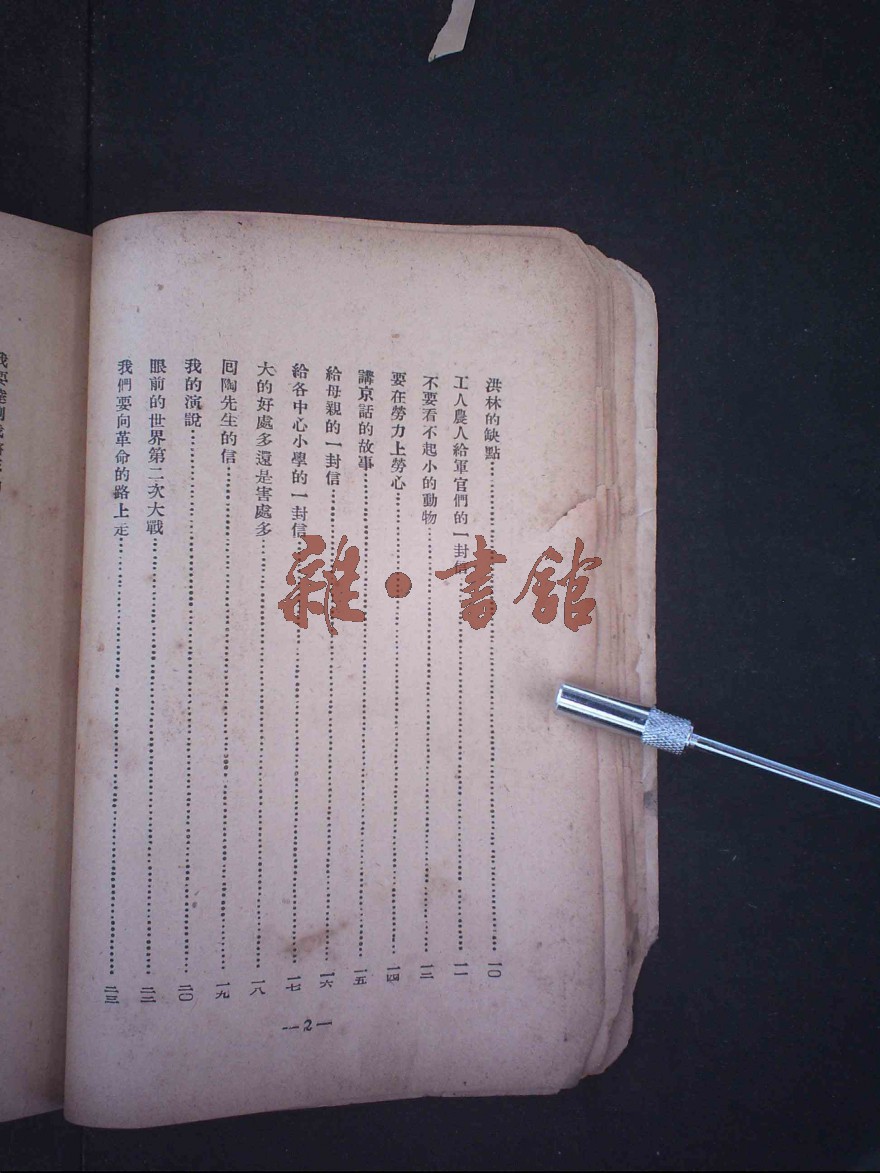 洪林的缺點……一〇
工人農人給軍官們的一封信……一一
不要看不起小的動物……一二
要在勞力上勞心……一四
講京話的故事……一五
給母親的一封信……一六
給各中心小學的一封信……一七
大的好處多還是害處多……一八
囘陶先生的信……一九
我的演說……二〇
眼前的世界第二次大戰……二二
我們要向革命的路上走……二三
—2—
雜·書館